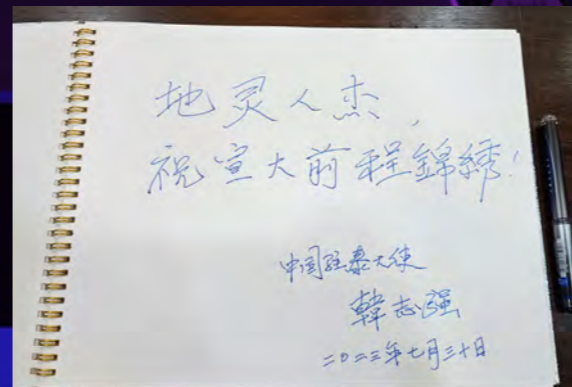 地灵人杰，
祝宣大前程錦綉！
中国驻泰大使
韓志强
二〇二三年七月三十日